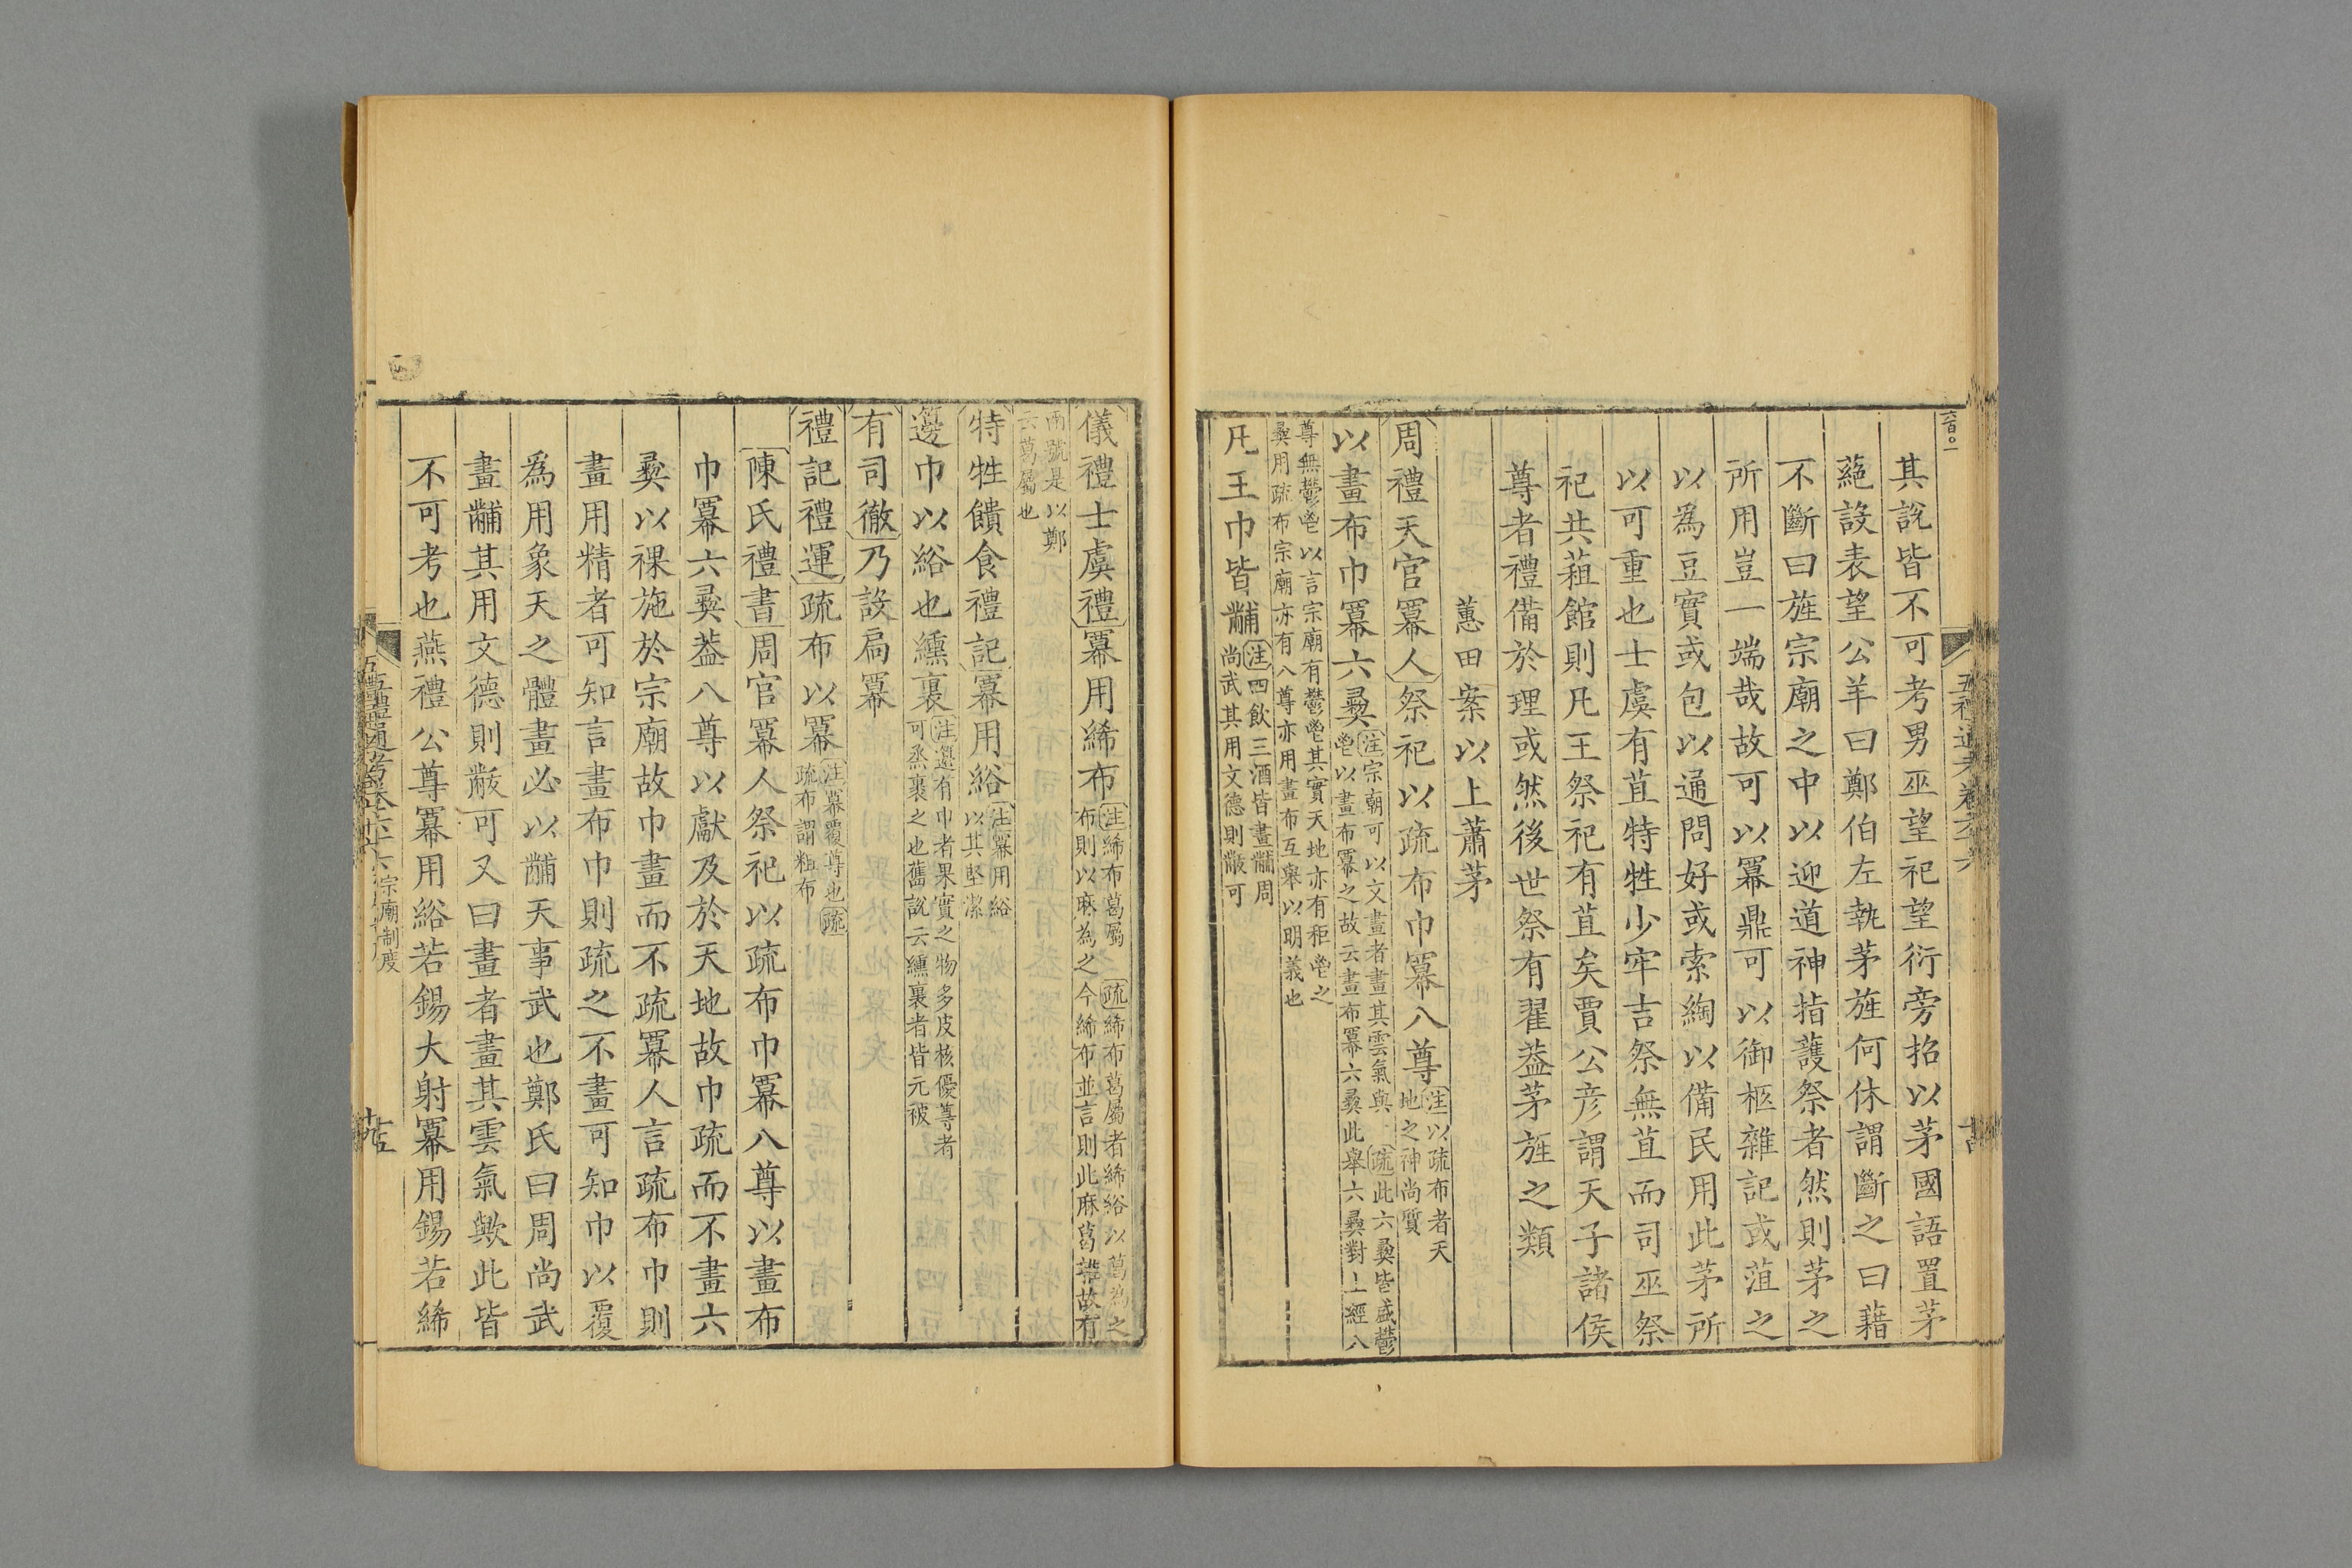 其說皆不可考男巫望祀望衍旁招以茅國語置茅
蕝設表望公羊曰鄭伯左執茅旌何休謂斷之曰藉
不斷曰旌宗廟之中以迎道神指護祭者然則茅之
所用豈一端哉故可以冪鼎可以御柩雜記或菹之
以爲豆實或包以通問好或索綯以備民用此茅所
以可重也士虞有苴特牲少牢吉祭無苴而司巫祭
祀共蒩館則凡王祭祀有苴矣賈公彦謂天子諸侯
尊者禮備於理或然後世祭有翟葢茅旌之類
蕙田案以上蕭茅
周禮天官冪人祭祀以疏布巾冪八尊注以疏布者天
地之神尚質
以畫布巾冪六彝注宗廟可以文畫者畫其雲氣與 疏此六彝皆盛鬱
鬯以畫布冪之故云畫布冪六彝此舉六彝對上經八
尊無鬱鬯以言宗廟有鬱鬯其實天地亦有秬鬯之
彝用疏布宗廟亦有八尊亦用畫布互舉以明義也
凡王巾皆黼注四飲三酒皆畫黼周
尚武其用文德則黻可
儀禮士虞禮冪用絺布注絺布葛屬 疏絺布葛屬者絺綌以葛為之
布則以麻為之今絺布並言則此麻葛雜故有
兩號是以鄭
云葛屬也
特牲饋食禮記冪用綌注冪用綌
以其堅潔
籩巾以綌也纁裏注籩有巾者果實之物多皮核優尊者
可烝裹之也舊說云纁裏者皆元被
有司徹乃設扃冪
禮記禮運疏布以冪注冪覆尊也疏
疏布謂粗布
陳氏禮書周官冪人祭祀以疏布巾冪八尊以畫布
巾冪六彝葢八尊以獻及於天地故巾疏而不畫六
彝以祼施於宗廟故巾畫而不疏冪人言疏布巾則
畫用精者可知言畫布巾則疏之不畫可知巾以覆
爲用象天之體畫必以黼天事武也鄭氏曰周尚武
畫黼其用文德則黻可又曰畫者畫其雲氣歟此皆
不可考也燕禮公尊冪用綌若錫大射冪用錫若絺
宗廟制度